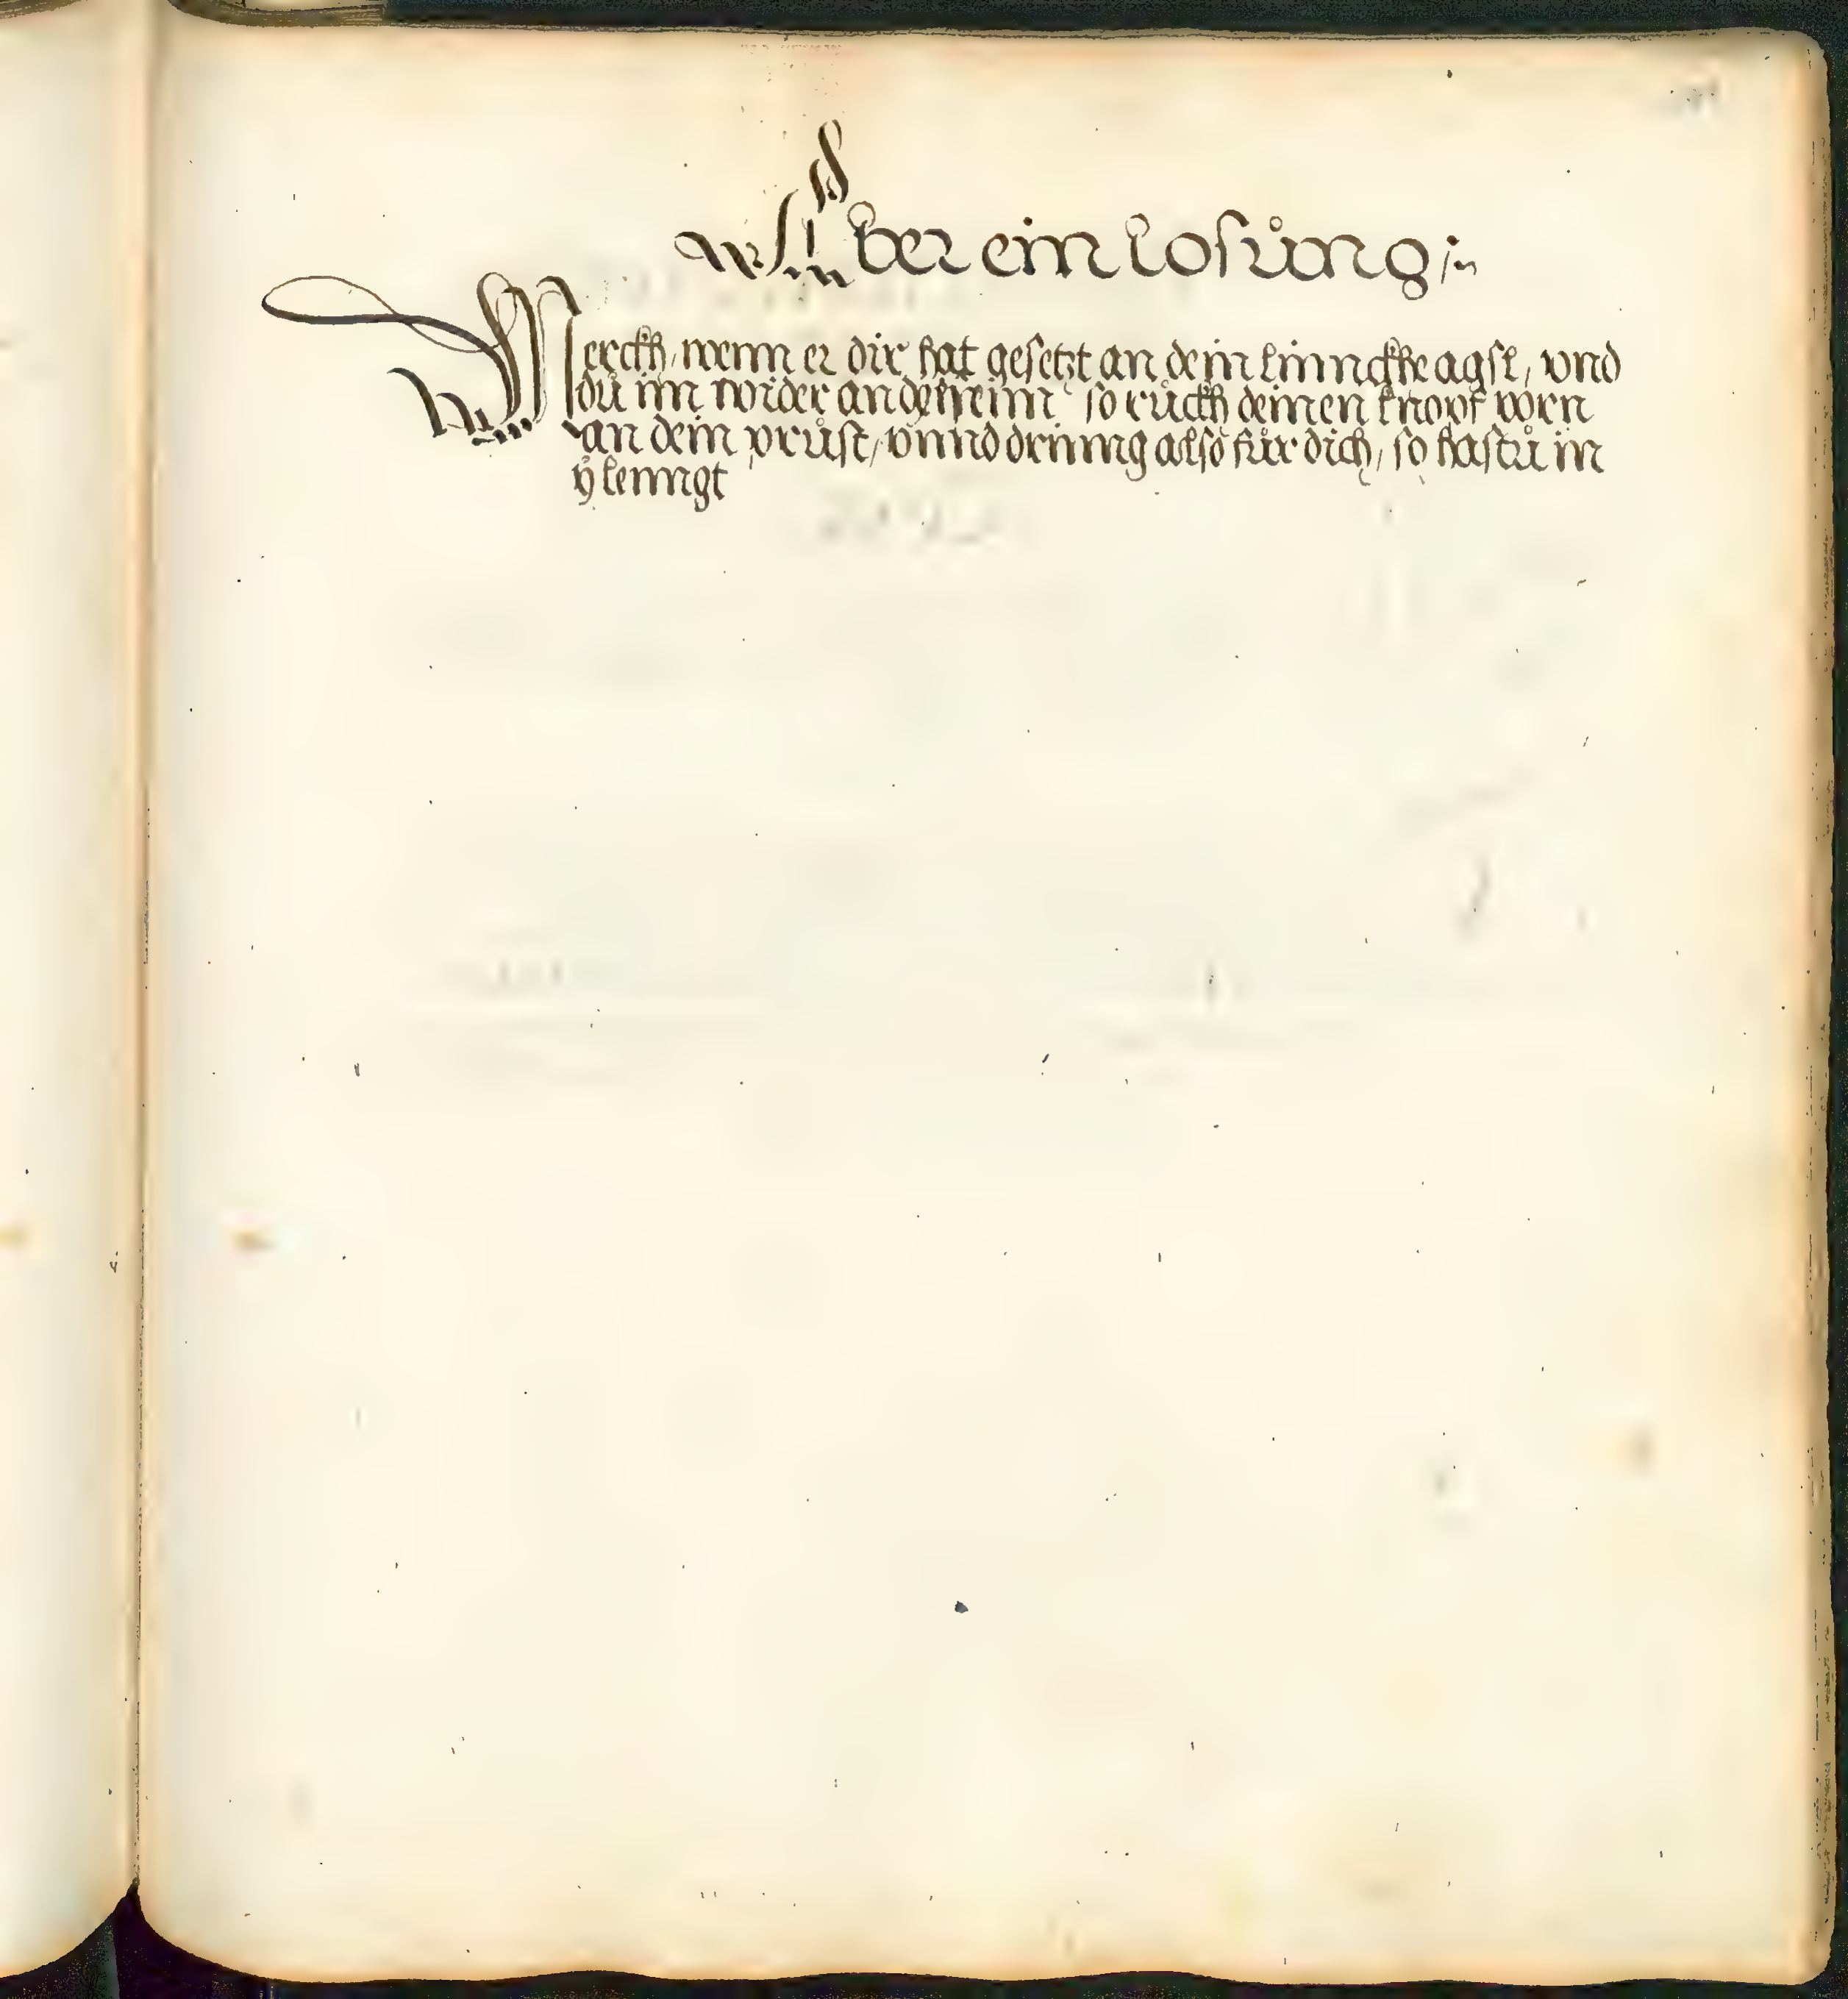 Aber ein losŭng
Merckh, wenn er dir hat gesetzt an dein linnckhe agsl, vnd
dŭ im wider an den sein so rŭckh deinen knopf vorn
an dein prŭst, vnnd dring also fŭr dich, so hastŭ in
ÿlenngt